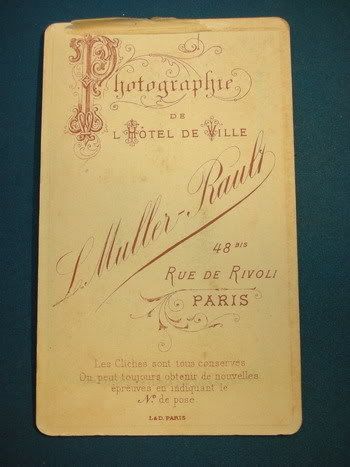 Photographie
DE
L'HÔTEL DE VILLE
L. Muller-Rault
48 BIS
RUE DE RIVOLI
PARIS
Les Clichés sont tous conservés
On peut toujours obtenir de nouvelles
épreuves en indiquant le
No. de pose
L&D. PARIS